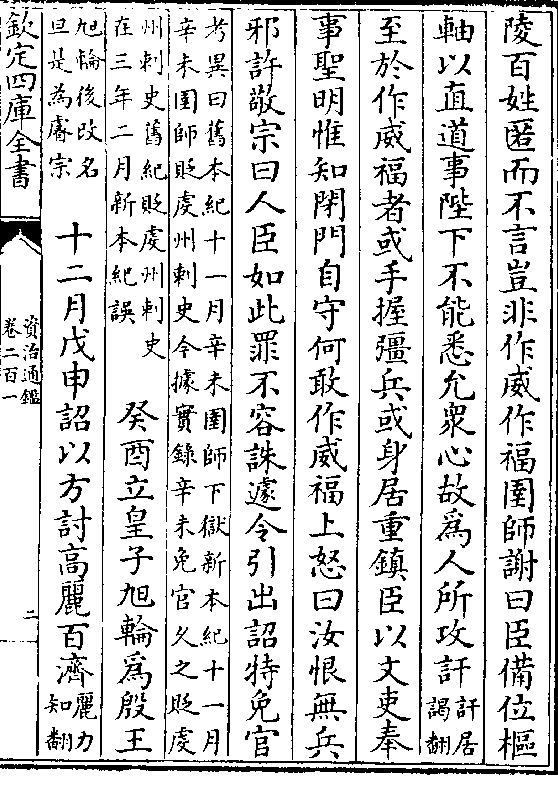 陵百姓匿而不言豈非作威作福圉師謝曰臣備位樞
軸以直道事陛下不能悉允衆心故爲人所攻訐訐居
謁翻
至於作威福者或手握彊兵或身居重鎮臣以文吏奉
事聖明惟知閉門自守何敢作威福上怒曰汝恨無兵
邪許敬宗曰人臣如此罪不容誅遽令引出詔特免官
考異曰舊本紀十一月辛未圉師下獄新本紀十一月
辛未圉師貶虔州刺史今據實錄辛未免官久之貶虔
州刺史舊紀貶虔州刺史
在三年二月新本紀誤
癸酉立皇子旭輪爲殷王
旭輪後改名
旦是為睿宗
十二月戊申詔以方討高麗百濟麗力
知翻
欽定四庫全書
資治通鑑
卷二百一
二